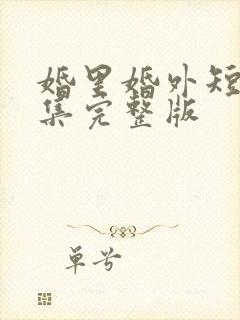 婚里婚外短
集完整版
单兮